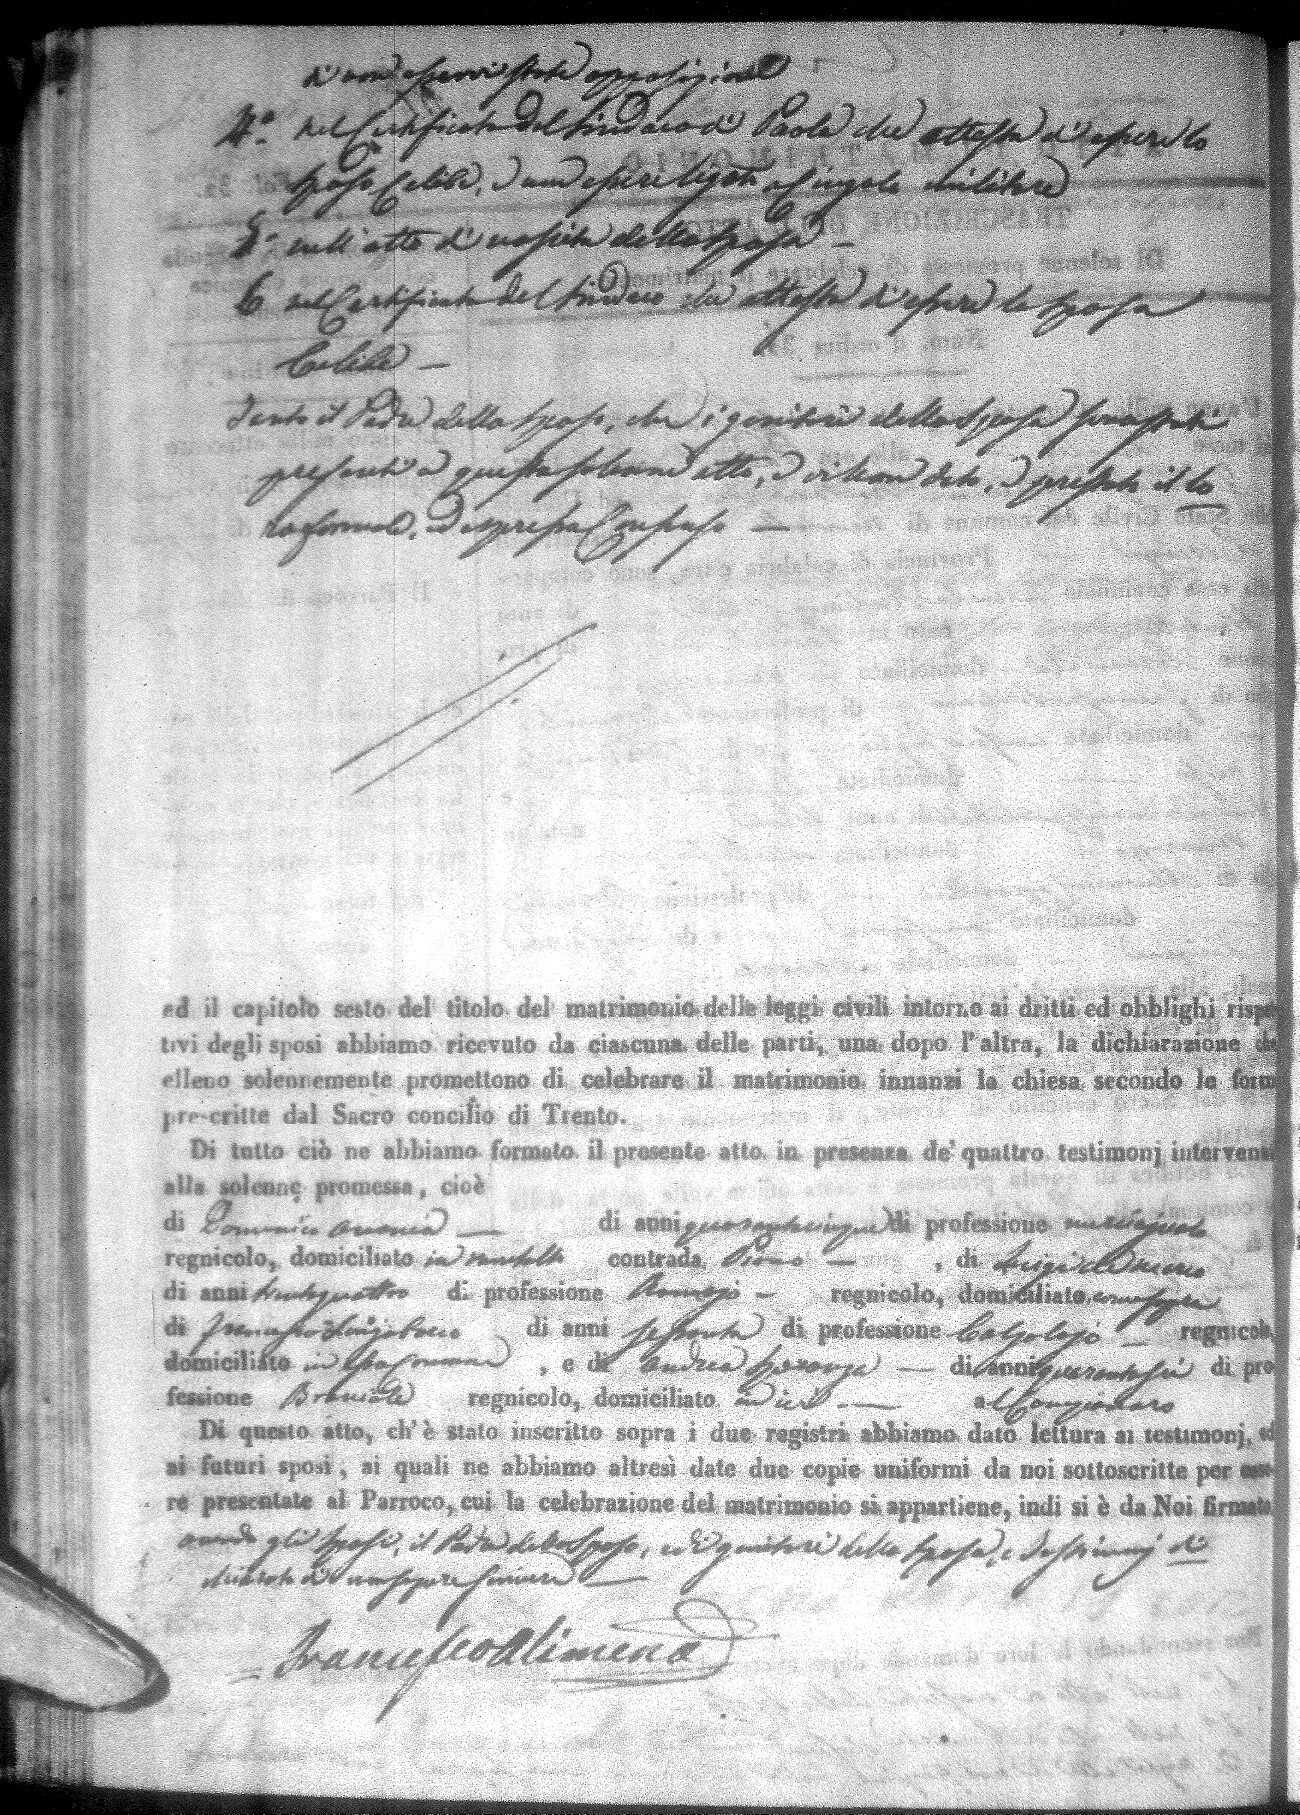 di non esservi stata opposizione
4.° nel Certificato del Sindaco di Paola che attesta di essere lo
sposo celibe, e non essere legato a singolo militare
5.° nell'atto di nascita della sposa —
6 nel Certificato del Sindaco che attesta di essere la sposa
Celibe —
Tanto il Padre dello Sposo, che i genitori della Sposa sono stati
presenti a questo solenne atto, e vi han dato, e prestato il lo
ro formale, ed espresso Consenso —
ed il capitolo sesto del titolo del matrimonio delle leggi civili intorno ai dritti ed obblighi rispe
tivi degli sposi abbiamo ricevuto da ciascuna delle parti, una dopo l'altra, la dichiarazione che
elleno solennemente promettono di celebrare il matrimonio innanzi la chiesa secondo le form
prescritte dal Sacro concilio di Trento.
Di tutto ciò ne abbiamo formato il presente atto in presenza de' quattro testimonj intervenu
alla solenne promessa, cioè
di Domenico — di anni quarantacinque di professione
regnicolo, domiciliato in contrada Piano — , di Luigi
di anni trentaquattro di professione — regnicolo, domiciliato
di Francesco di anni sessanta di professione Calzolajo — regnicolo
domiciliato in , e di Andrea — di anni quarantasei di pro
fessione Bracciale regnicolo, domiciliato — al
Di questo atto, ch'è stato inscritto sopra i due registri abbiamo dato lettura ai testimonj, ed
ai futuri sposi, ai quali ne abbiamo altresì date due copie uniformi da noi sottoscritte per esse
re presentate al Parroco, cui la celebrazione del matrimonio si appartiene, indi si è da Noi firmato
avendo gli sposi, il Padre dello Sposo, ed i genitori della Sposa, e testimonj di
chiarato di non sapere scrivere —
Francesco Alimena